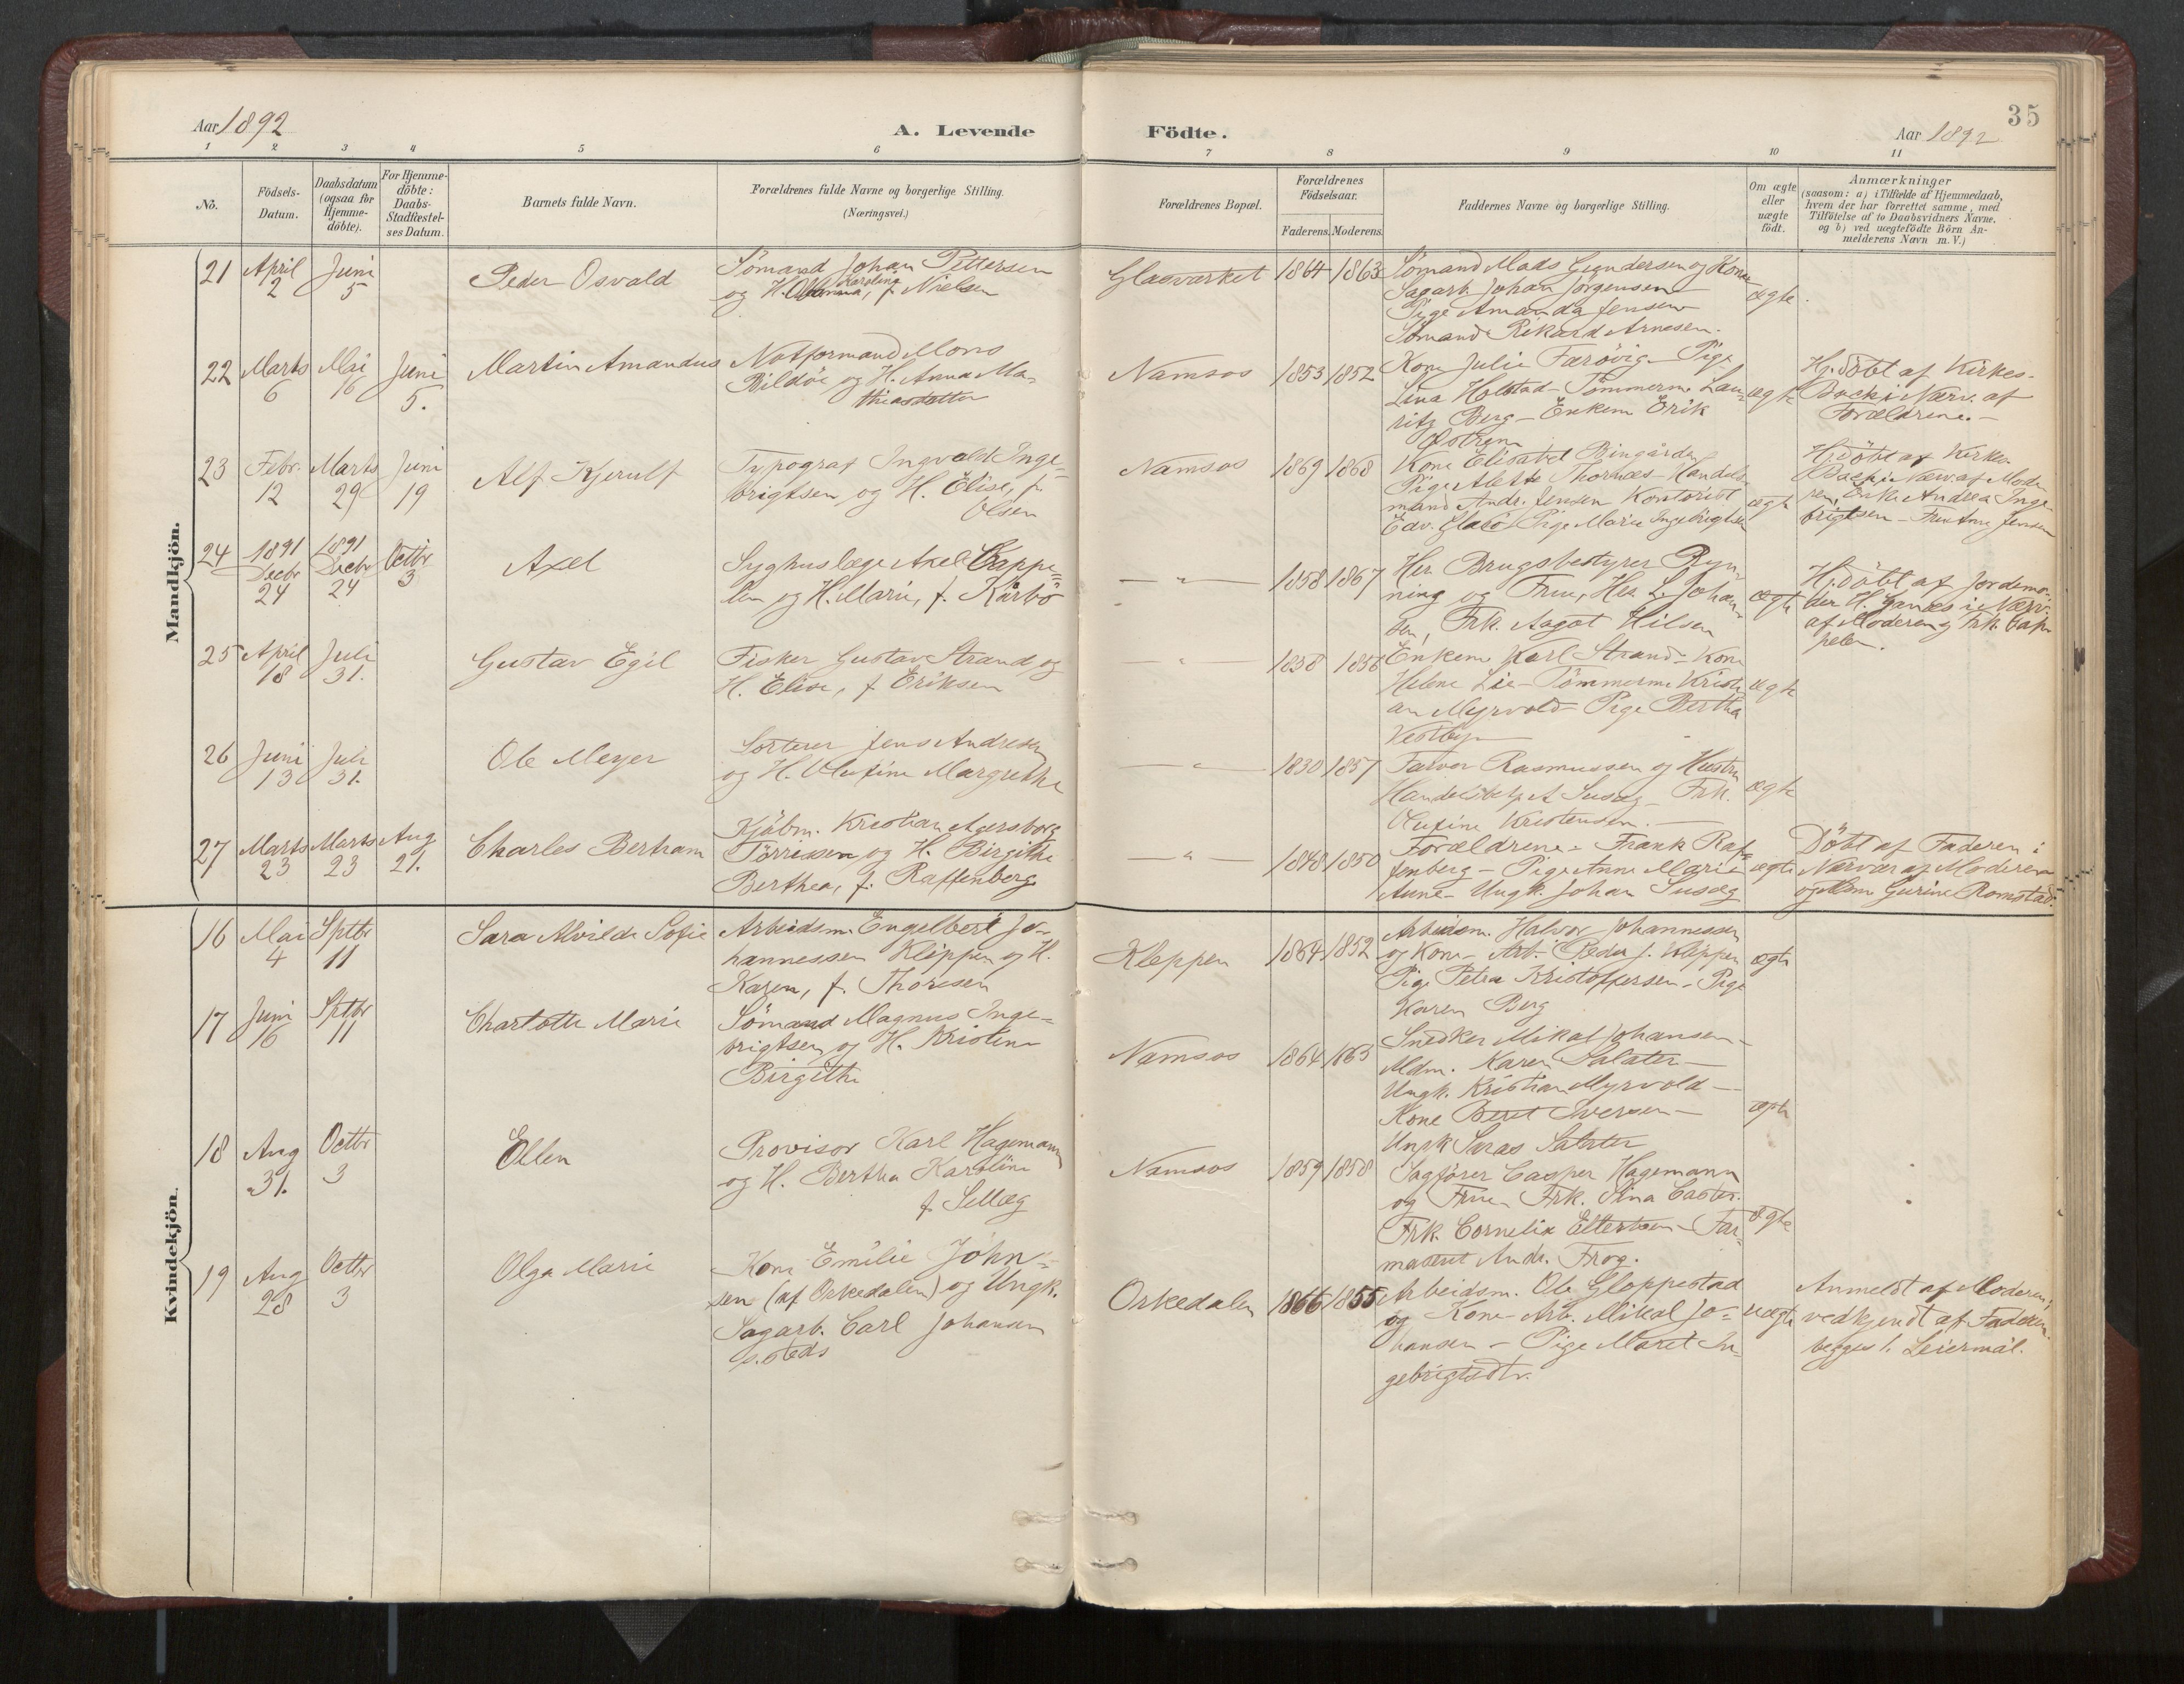 35
Aar 1892
A. Levende Födte.
Aar 1892
1 2 3 4 5 6 7 8 9 10 11
No.
Födsels-
Datum.
Daabsdatum
(ogsaa for
Hjemme-
döbte).
For Hjemme-
döbte:
Daabs-
Stadfæstel-
ses Datum.
Barnets fulde Navn.
Forældrenes fulde Navne og borgerlige Stilling.
(Næringsvei.)
Forældrenes Bopæl.
Forældrenes
Födselsaar.
Faderens. Moderens.
Faddernes Navne og borgerlige Stilling.
Om ægte
eller
uægte
födt.
Anmærkninger
(saasom: a) i Tilfælde af Hjemmedaab,
hvem der har forrettet samme, med
Tilföielse af to Daabsvidners Navne.
og b) ved uægtefödte Börn An-
melderens Navn m. V.)
Mandkjön.
21
April
2
Juni
5
Peder Osvald
Sömand Johan Pettersen
Karolina
og H. f. Nielsen
Glasværket
1864
1863
Sömand Mads Gundersen og Kone
Sagarb. Johan Jörgensen
Pige Amanda Jensen
Sömand Rikard Arnesen.
ægte.
22
Marts
6
Mai
16
Juni
5.
Martin Amandus
Notformand Mons
Bildöe og H. Anna Ma-
thiasdatter
Namsos
1853
1852
Kone Julie Farövig - Pige
Lina Holstad - Tömmerm. Lau-
ritz Berg - Enkem Erik
Östrem
ægte
Hj. döbt af Kirkes.
Buck i Nærv. af
Forældrene. -
23
Febr.
12
Marts
29
Juni
19
Alf Kjerulf
Typograf Ingvald Inge-
brigtsen og H. Elise, f.
Olsen
Namsos
1869
1868
Kone Elisabet Bingården
Pige Alette Thornæs - Handels-
mand Andr. Jensen Kontorist
Edv. Glasö Pige Marie Ingebrigtsen
ægte
Hj. Döbt af Kirkes.
Buck i Nærv af Mode-
ren, Enke Andrea Inge-
brigtsen - Fru Anne Jensen
24
1891
Decbr
24
1891
Decbr
24
Octbr
3
Axel
Syghuslæge Axel Cappe-
len og H. Marie, f. Kårbö
— " —
1858
1867
Her Brugsbestyrer Ryn-
ning og Frue, Her L. Johan-
sen, Frk. Aagot Hilsen
ægte
Hj. döbt af Jordemo-
der H. Ganæs i Nærv.
af Moderen og Frk. Cap-
pelen.
25
April
18
Juli
31.
Gustav Egil
Fisker Gustav Strand og
H. Elise, f. Eriksen
— " —
1858
1856
Enkem Karl Strand - Kone
Helene Lie - Tömmerm. Kristi-
an Myrvold - Pige Bertha
Vestbye
ægte
26
Juni
13
Juli
31.
Ole Meyer
Sorterer Jens Andresen
og H. Olufine Margrethe
— " —
1830
1857
Farver Rasmussen og Hustru
Handelsbetj. A Susæg - Frk.
Olufine Kristensen. -
ægte
27
Marts
23
Marts
23
Aug
21.
Charles Bertram
Kjöbm. Kristian Agersborg
Törrissen og H. Birgithe
Berthea, f. Raffenberg
— " —
1848
1850
Forældrene - Frank Raf-
fenberg - Pige Anne Marie
Aune - Ungk. Johan Susæg
ægte
Döbt af Faderen i
Nærvær af Moderen
og Kone Gurine Romstad.
Kvindekjön.
16
Mai
4
Sptbr
11
Sara Alvilde Sofie
Arbeidsm. Engelbert Jo-
hannessen Kleppen og H.
Karen, f. Thoresen
Kleppen
1864
1852
Arbeidsm. Halvor Johannessen
og Kone - Arb. Peder J. Kleppen
Pige Petra Kristoffersen - Pige
Karen Berg
ægte
17
Juni
16
Sptbr
11
Charlotte Marie
Sömand Magnus Inge-
brigtsen og H. Kristine
Birgithe
Namsos
1864
1863
Snedker Mikal Johansen -
Mdm. Karen Salater -
Ungk. Kristian Myrvold -
Kone Beret Iversen -
Ungk Saras Salater
ægte
18
Aug
31.
Octbr
3
Ellen
Provisor Karl Hagemann
og H. Bertha Karoline
f. Sellæg
Namsos
1859
1858
Sagförer Casper Hagemann
og Frue Frk. Stina Caster.
Frk. Cornelia - Far-
maceut Andr. Frog.
ægte
19
Aug
28
Octbr
3
Olga Marie
Kone Emilie John-
sen (af Orkedalen) og Ungk.
Sagarb. Carl Johansen
s. steds
Orkedalen
1866
1855
Arbeidsm. Ole Gloppestad
og Kone - Arb. Mikal Jo-
hansen - Pige Maret In-
gebrigtsdtr.
uægte
Anmeldt af Moderen;
vedkjendt af Faderen.
begges 1. Leiermål.